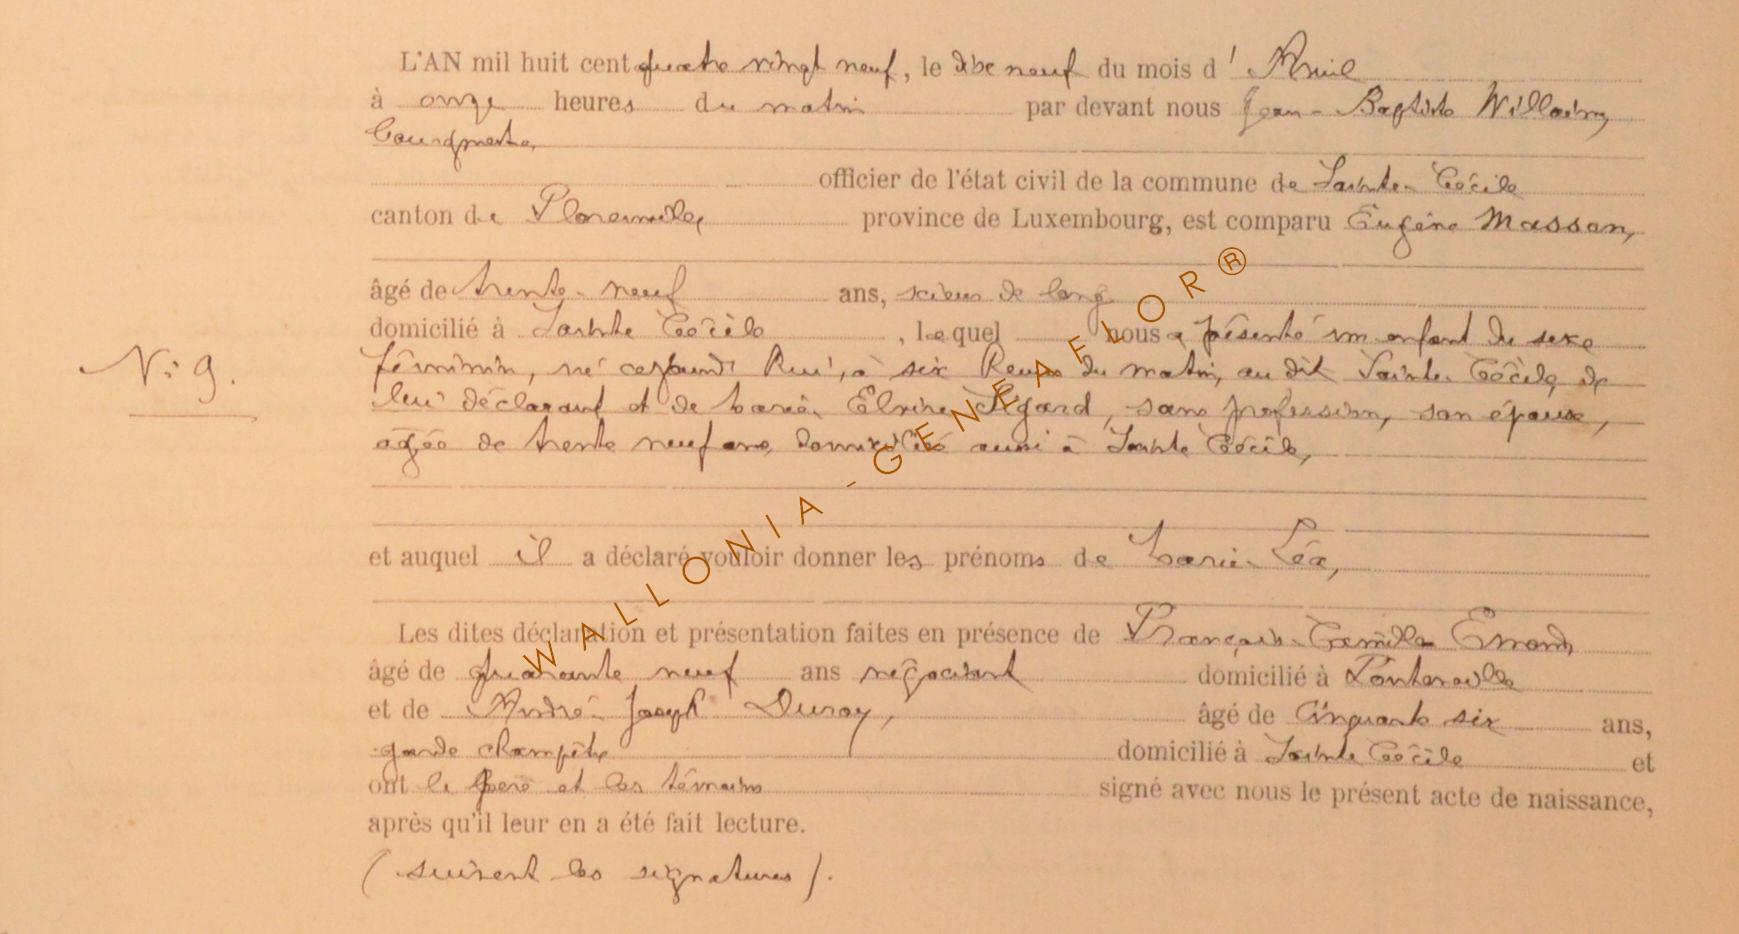 L'AN mil huit cent quatre vingt neuf, le dix neuf du mois d'Avril
à onze heures du matin par devant nous Jean-Baptiste Willaime,
Bourgmestre,
officier de l'état civil de la commune de Sainte-Cécile
canton de Florenville, province de Luxembourg, est comparu Eugène Masson,
âgé de trente-neuf ans, scieur de long
domicilié à Sainte Cécile, lequel nous a présenté un enfant du sexe
N° 9.
féminin, né cejourd'hui, à six heures du matin, au dit Sainte-Cécile, de
lui déclarant et de Marie-Elvire Agard, sans profession, son épouse,
âgée de trente neuf ans, domiciliée aussi à Sainte Cécile,
et auquel il a déclaré vouloir donner les prénoms de Marie-Léa,
Les dites déclaration et présentation faites en présence de François-Camille Emond,
âgé de quarante neuf ans négociant domicilié à Fontenoille
et de André-Joseph Duroy, âgé de cinquante six ans,
garde champêtre domicilié à Sainte Cécile et
ont le père et les témoins signé avec nous le présent acte de naissance,
après qu'il leur en a été fait lecture.
(suivent les signatures).
WALLONIA-GENEAFLOR®